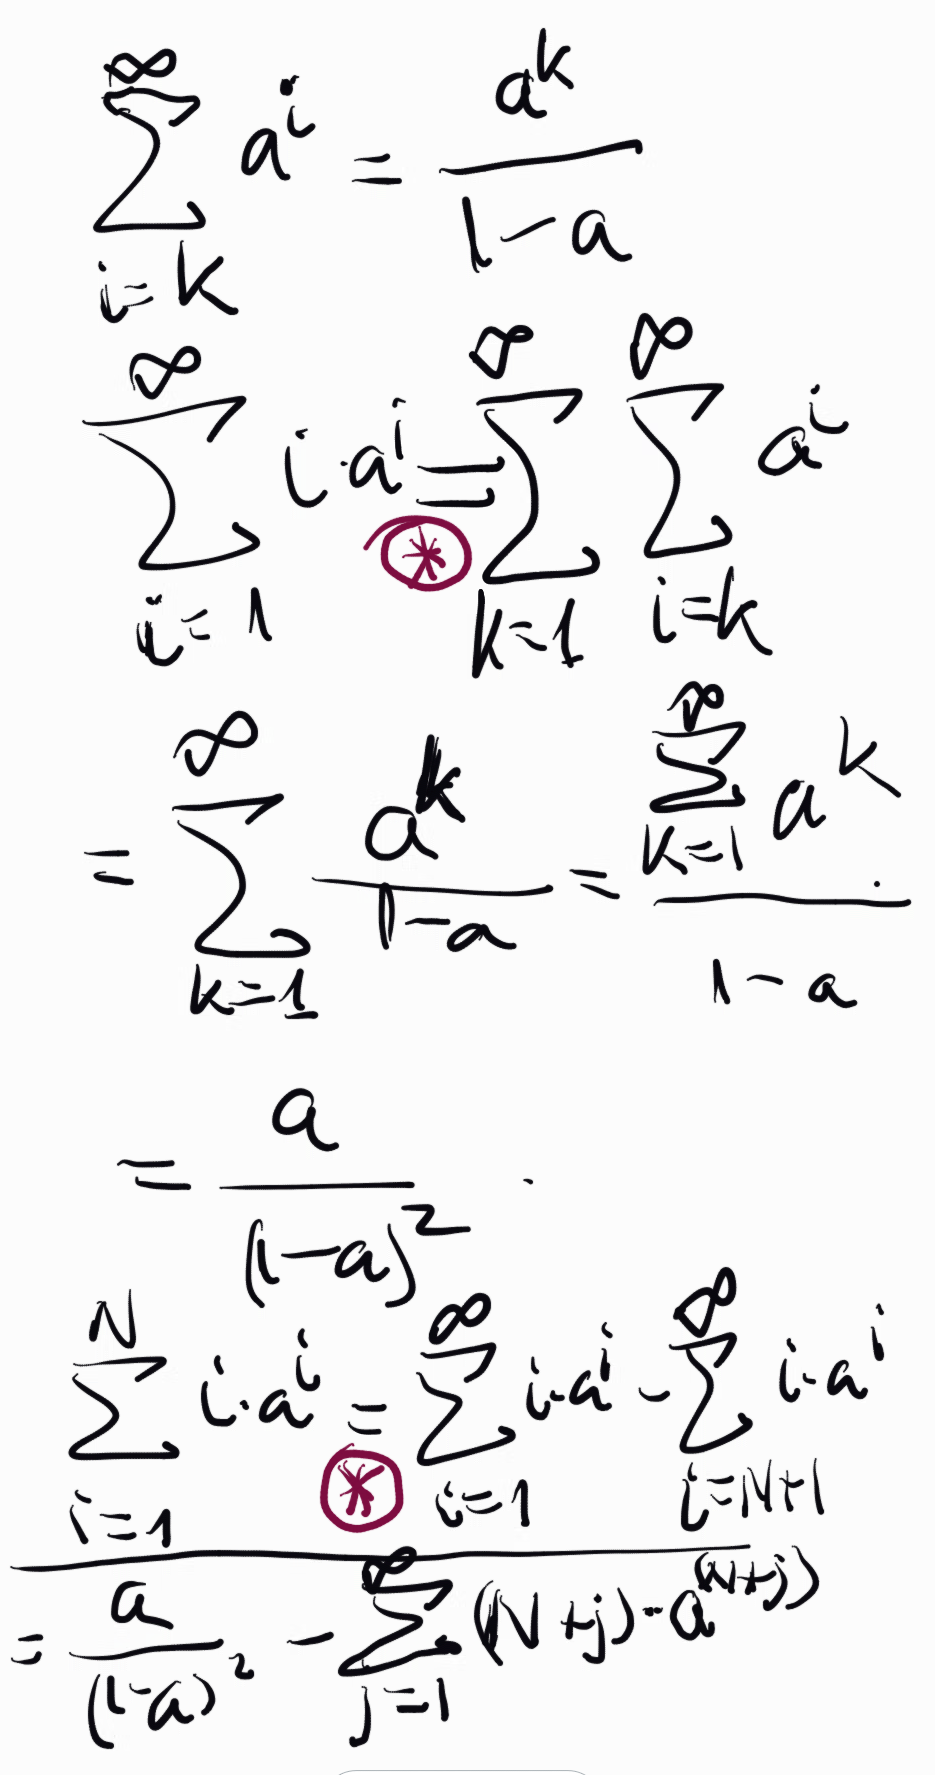 ∑_{i=k}^{∞} a^i = a^k / (1-a)
∑_{i=1}^{∞} i·a^i = ∑_{k=1}^{∞} ∑_{i=k}^{∞} a^i
⊛
= ∑_{k=1}^{∞} a^k / (1-a) = (∑_{k=1}^{∞} a^k) / (1-a)
= a / (1-a)^2 .
∑_{i=1}^{N} i·a^i = ∑_{i=1}^{∞} i·a^i - ∑_{i=N+1}^{∞} i·a^i
⊛
= a / (1-a)^2 - ∑_{j=1}^{∞} (N+j)·a^{(N+j)}